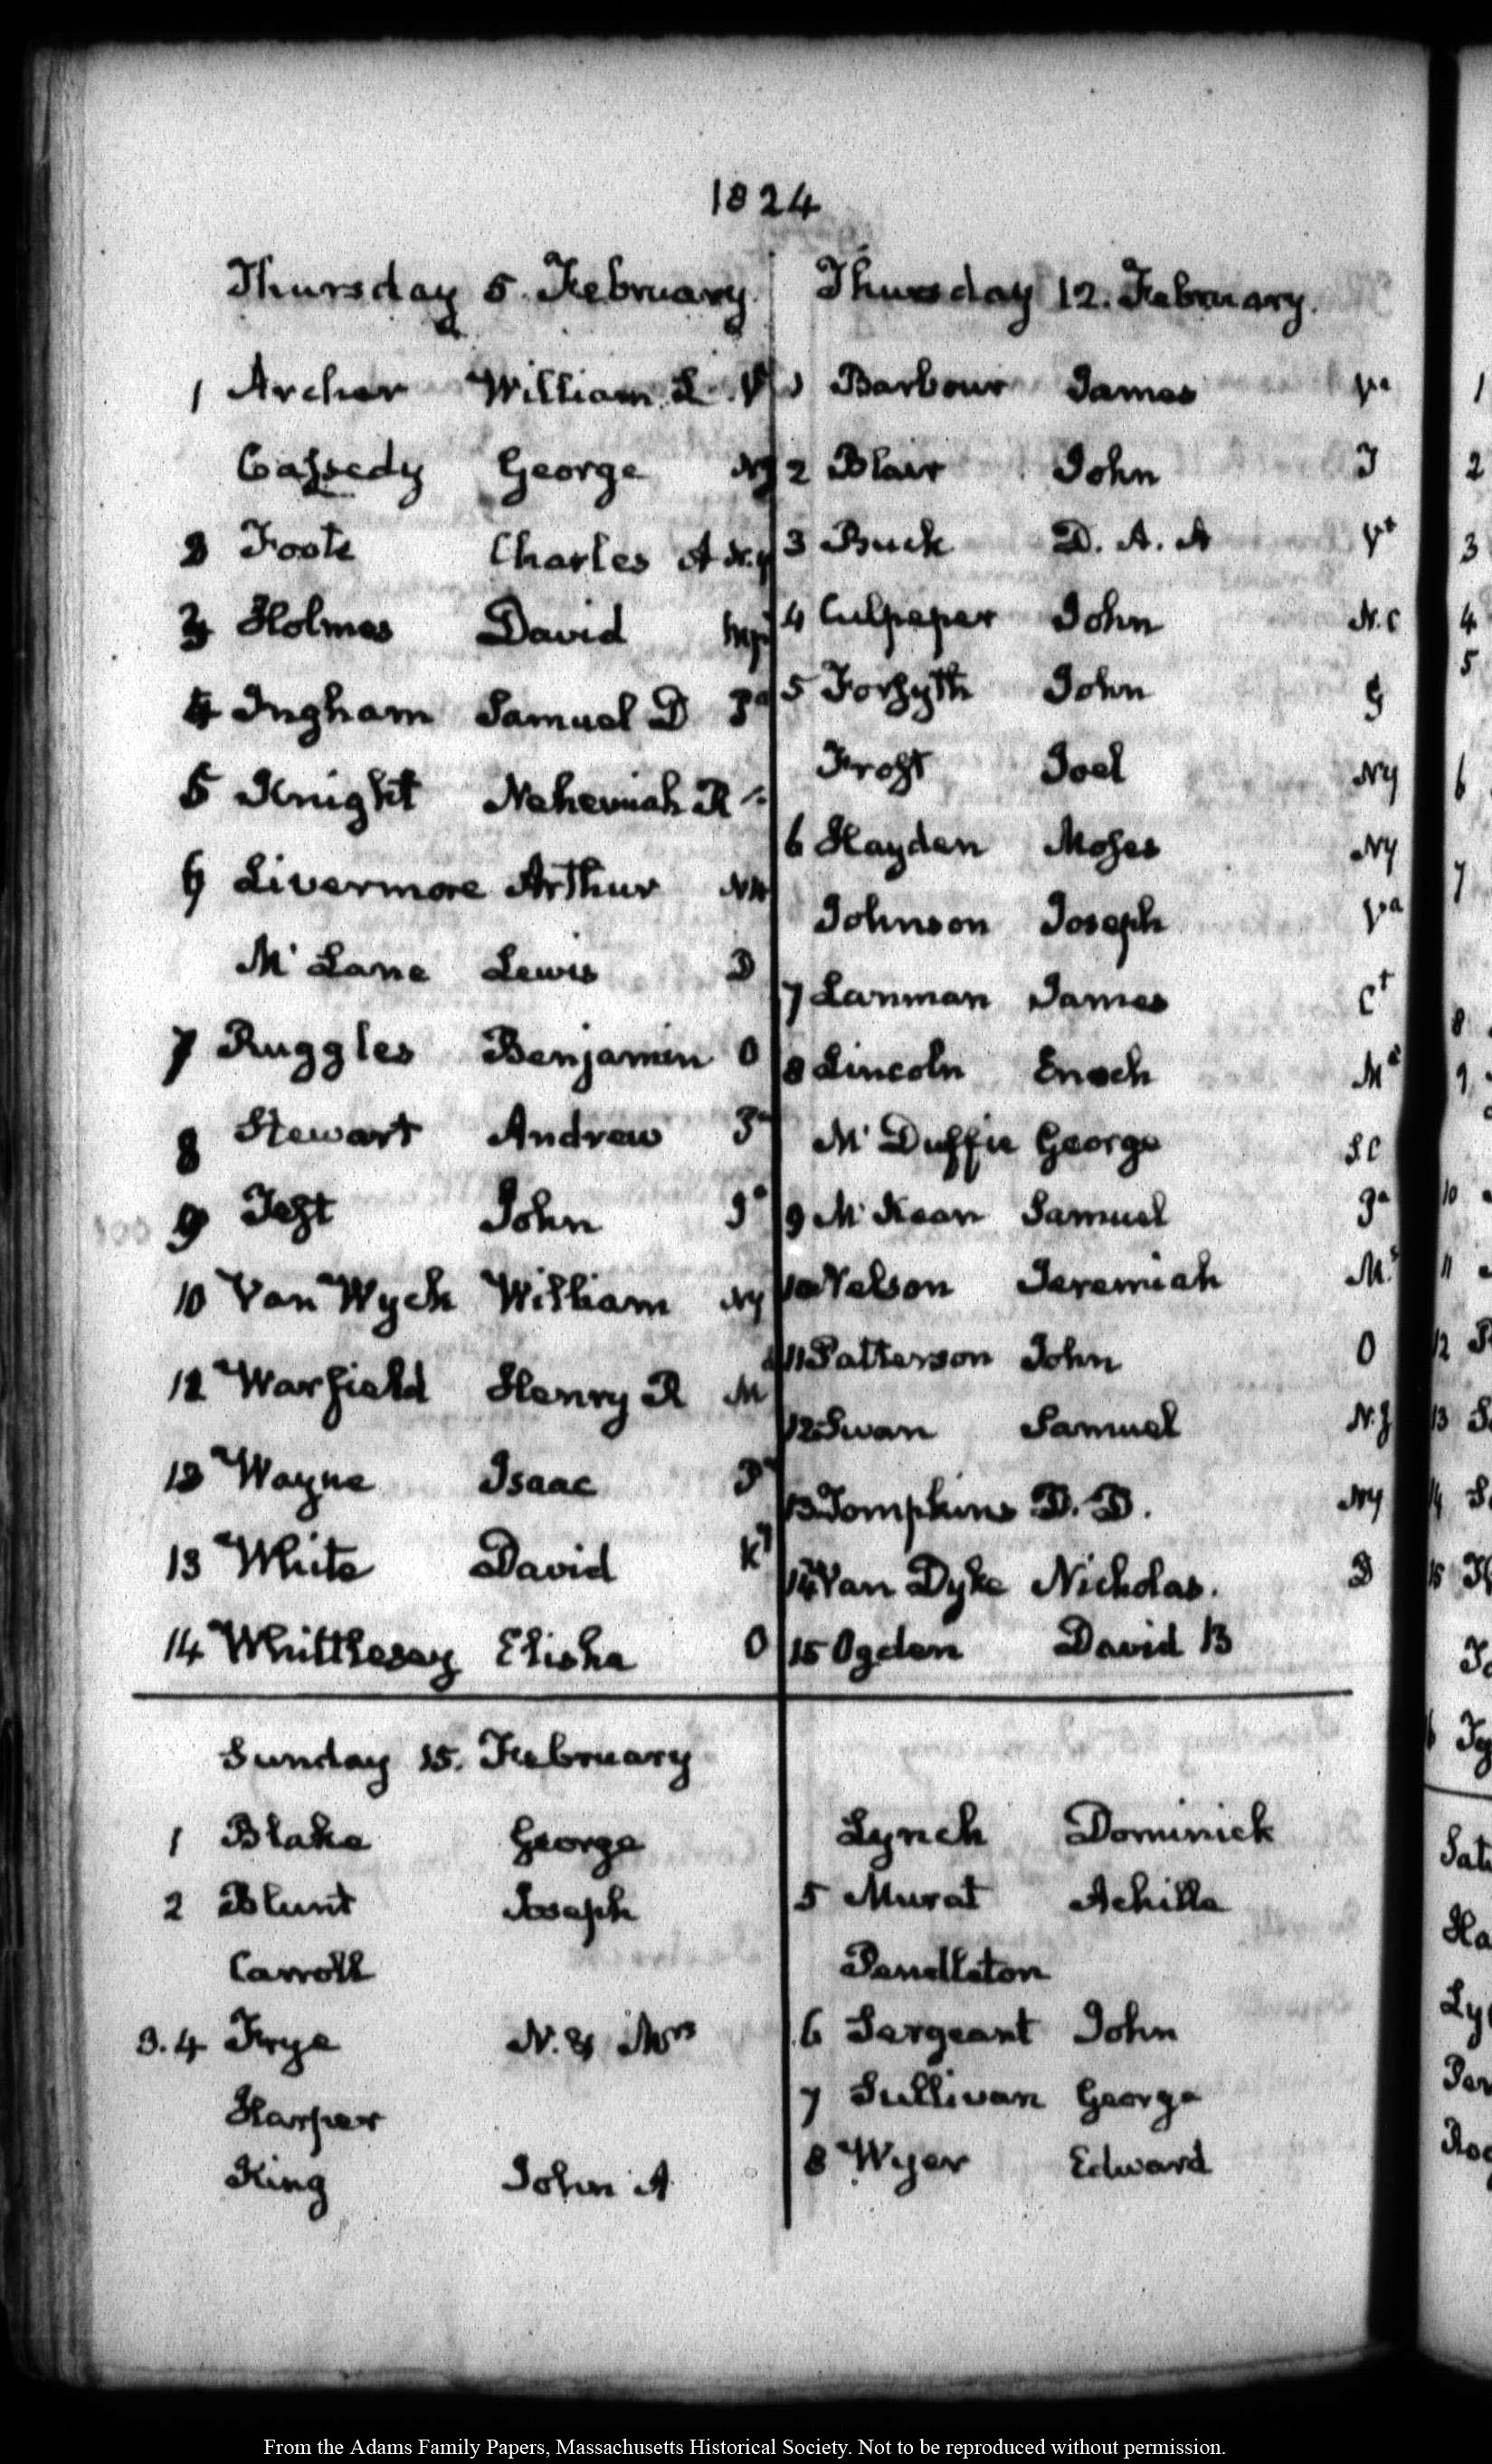 1824
Thursday 5. February.
1 Archer William S. V
Cassedy George NJ
2 Foote Charles A N.Y
3 Holmes David Mi
4 Ingham Samuel D Pa
5 Knight Nehemiah R
6 Livermore Arthur NH
McLane Lewis D
7 Ruggles Benjamin O
8 Stewart Andrew Pa
9 Test John Ia
10 Van Wyck William NY
12 Warfield Henry R M
13 Wayne Isaac Pa
13 White David Ky
14 Whittlesey Elisha O
Thursday 12. February.
1 Barbour James Va
2 Blair John T
3 Buck D. A. A Vt
4 Culpeper John N.C
5 Forsyth John G
Frost Joel NY
6 Hayden Moses NY
Johnson Joseph Va
7 Lanman James Ct
8 Lincoln Enoch Me
McDuffie George SC
9 McKean Samuel Pa
10 Nelson Jeremiah Ms
11 Patterson John O
12 Swan Samuel N.J
13 Tompkins D. D. NY
14 Van Dyke Nicholas. D
15 Ogden David B
Sunday 15. February
1 Blake George
2 Blunt Joseph
Carroll
3.4 Frye N. & Mrs
Harper
King John A
Lynch Dominick
5 Murat Achille
Pendleton
6 Sergeant John
7 Sullivan George
8 Wyer Edward
From the Adams Family Papers, Massachusetts Historical Society. Not to be reproduced without permission.